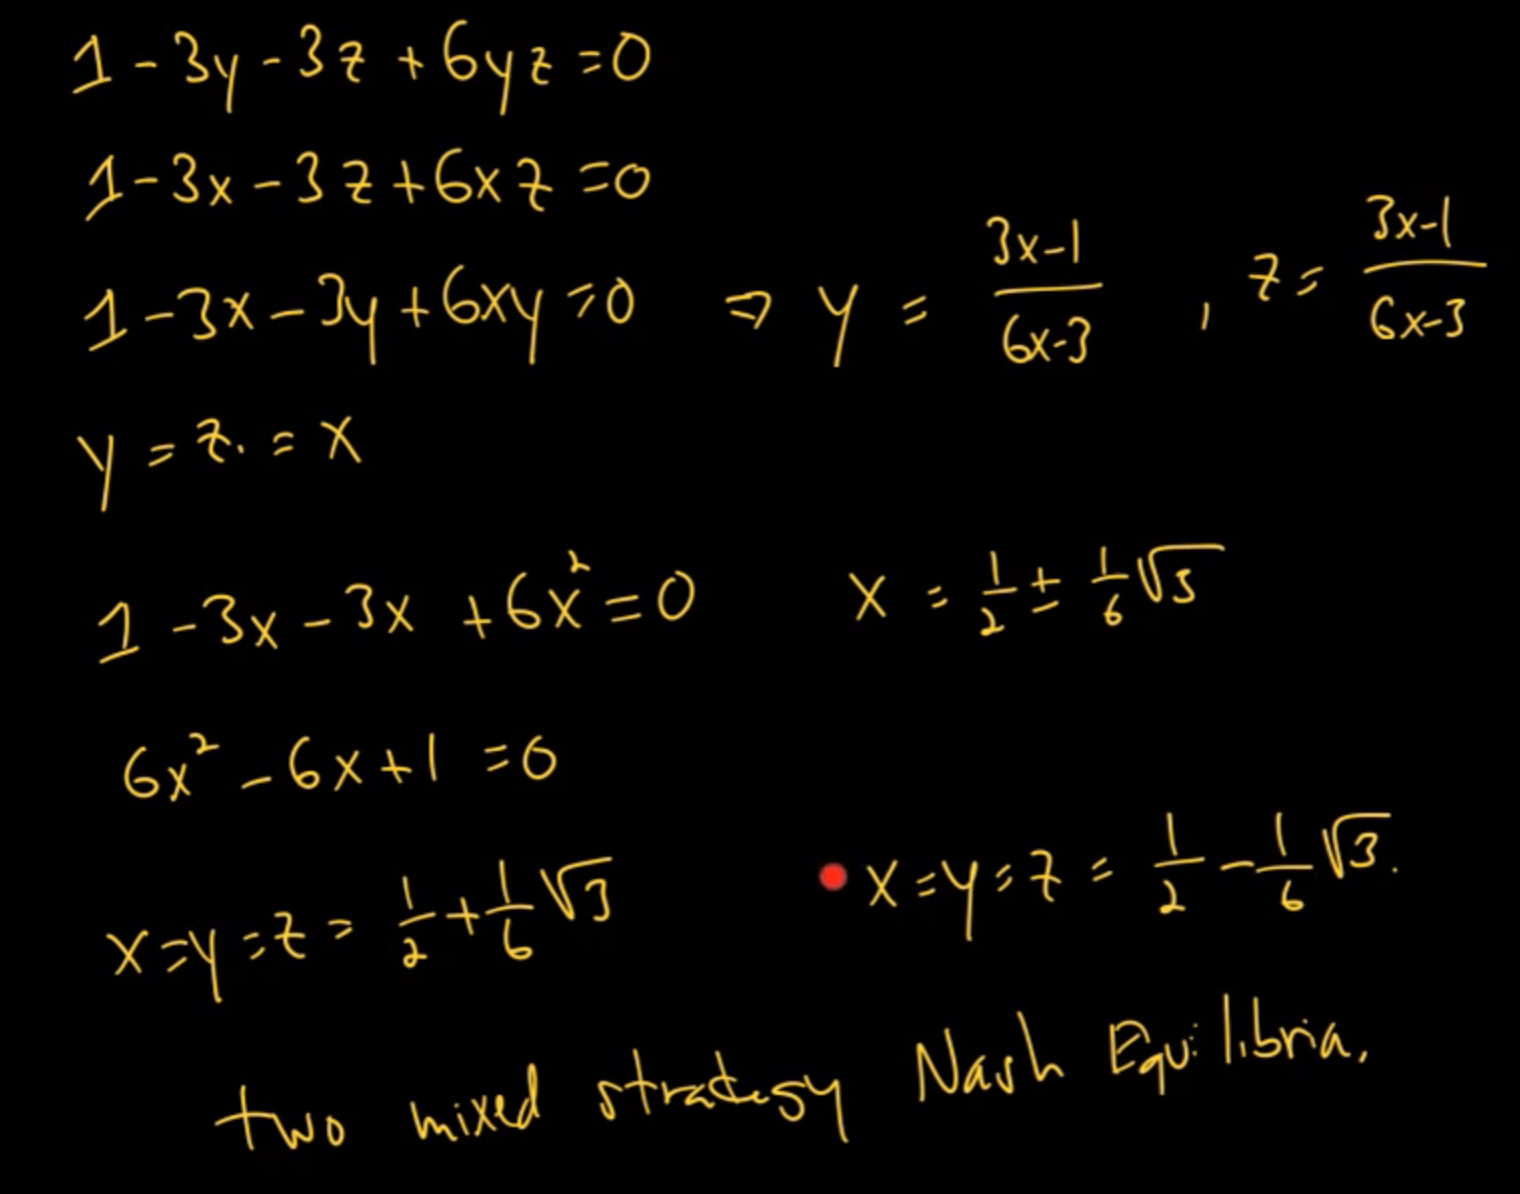 1 - 3y - 3z + 6yz = 0
1 - 3x - 3z + 6xz = 0
1 - 3x - 3y + 6xy = 0 ⇒ y = (3x-1)/(6x-3) , z = (3x-1)/(6x-3)
y = z. = x
1 - 3x - 3x + 6x² = 0 x = 1/2 ± 1/6 √3
6x² - 6x + 1 = 0
x = y = z = 1/2 + 1/6 √3 x = y = z = 1/2 - 1/6 √3.
two mixed strategy Nash Equilibria.